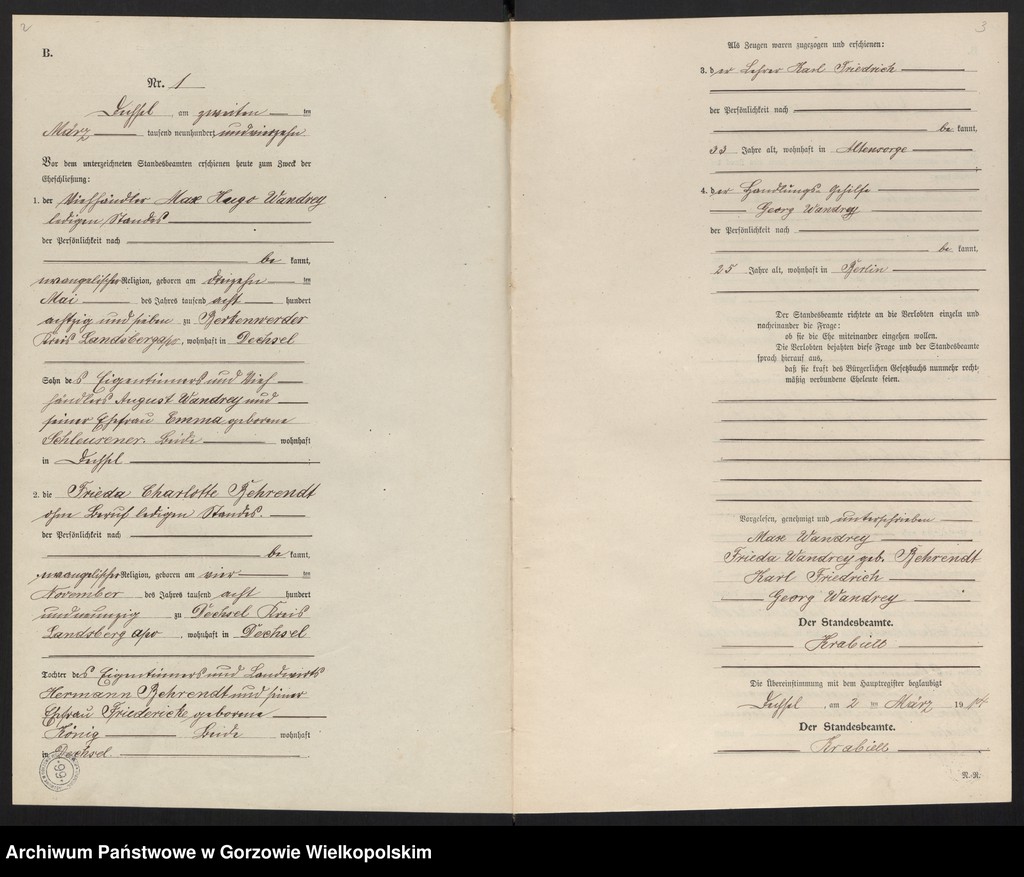 2
B.
Nr. 1
Dechsel, am zweiten ten
März tausend neunhundert und vierzehn
Vor dem unterzeichneten Standesbeamten erschienen heute zum Zweck der
Eheschließung:
1. der Viehhändler Max Hugo Wandrey
ledigen Standes
der Persönlichkeit nach
be kannt,
evangelischer Religion, geboren am dreizehn ten
Mai des Jahres tausend acht hundert
achtzig und sieben zu Berkenwerder
Kreis Landsberg a/w, wohnhaft in Dechsel
Sohn des Eigentümers und Vieh
händlers August Wandrey und
seiner Ehefrau Emma geborene
Schleusener. Beide wohnhaft
in Dechsel
2. die Frieda Charlotte Behrendt
ohne Beruf ledigen Standes.
der Persönlichkeit nach
be kannt,
evangelischer Religion, geboren am vier ten
November des Jahres tausend acht hundert
und neunzig zu Dechsel Kreis
Landsberg a/w, wohnhaft in Dechsel
Tochter des Eigentümers und Landwirts
Hermann Behrendt und seiner
Ehefrau Friedericke geborene
König Beide wohnhaft
in Dechsel
66
3
Als Zeugen waren zugezogen und erschienen:
3. der Lehrer Karl Friedrich
der Persönlichkeit nach
be kannt,
33 Jahre alt, wohnhaft in Altensorge
4. der Handlungs-Gehilfe
Georg Wandrey
der Persönlichkeit nach
be kannt,
25 Jahre alt, wohnhaft in Berlin
Der Standesbeamte richtete an die Verlobten einzeln und
nacheinander die Frage:
ob sie die Ehe miteinander eingehen wollen.
Die Verlobten bejahten diese Frage und der Standesbeamte
sprach hierauf aus,
daß sie kraft des Bürgerlichen Gesetzbuchs nunmehr recht-
mäßig verbundene Eheleute seien.
Vorgelesen, genehmigt und unterschrieben
Max Wandrey
Frieda Wandrey geb. Behrendt
Karl Friedrich
Georg Wandrey
Der Standesbeamte.
Krabiell
Die Übereinstimmung mit dem Hauptregister beglaubigt
Dechsel, am 2 ten März 1914
Der Standesbeamte.
Krabiell
N.-R.
Archiwum Państwowe w Gorzowie Wielkopolskim